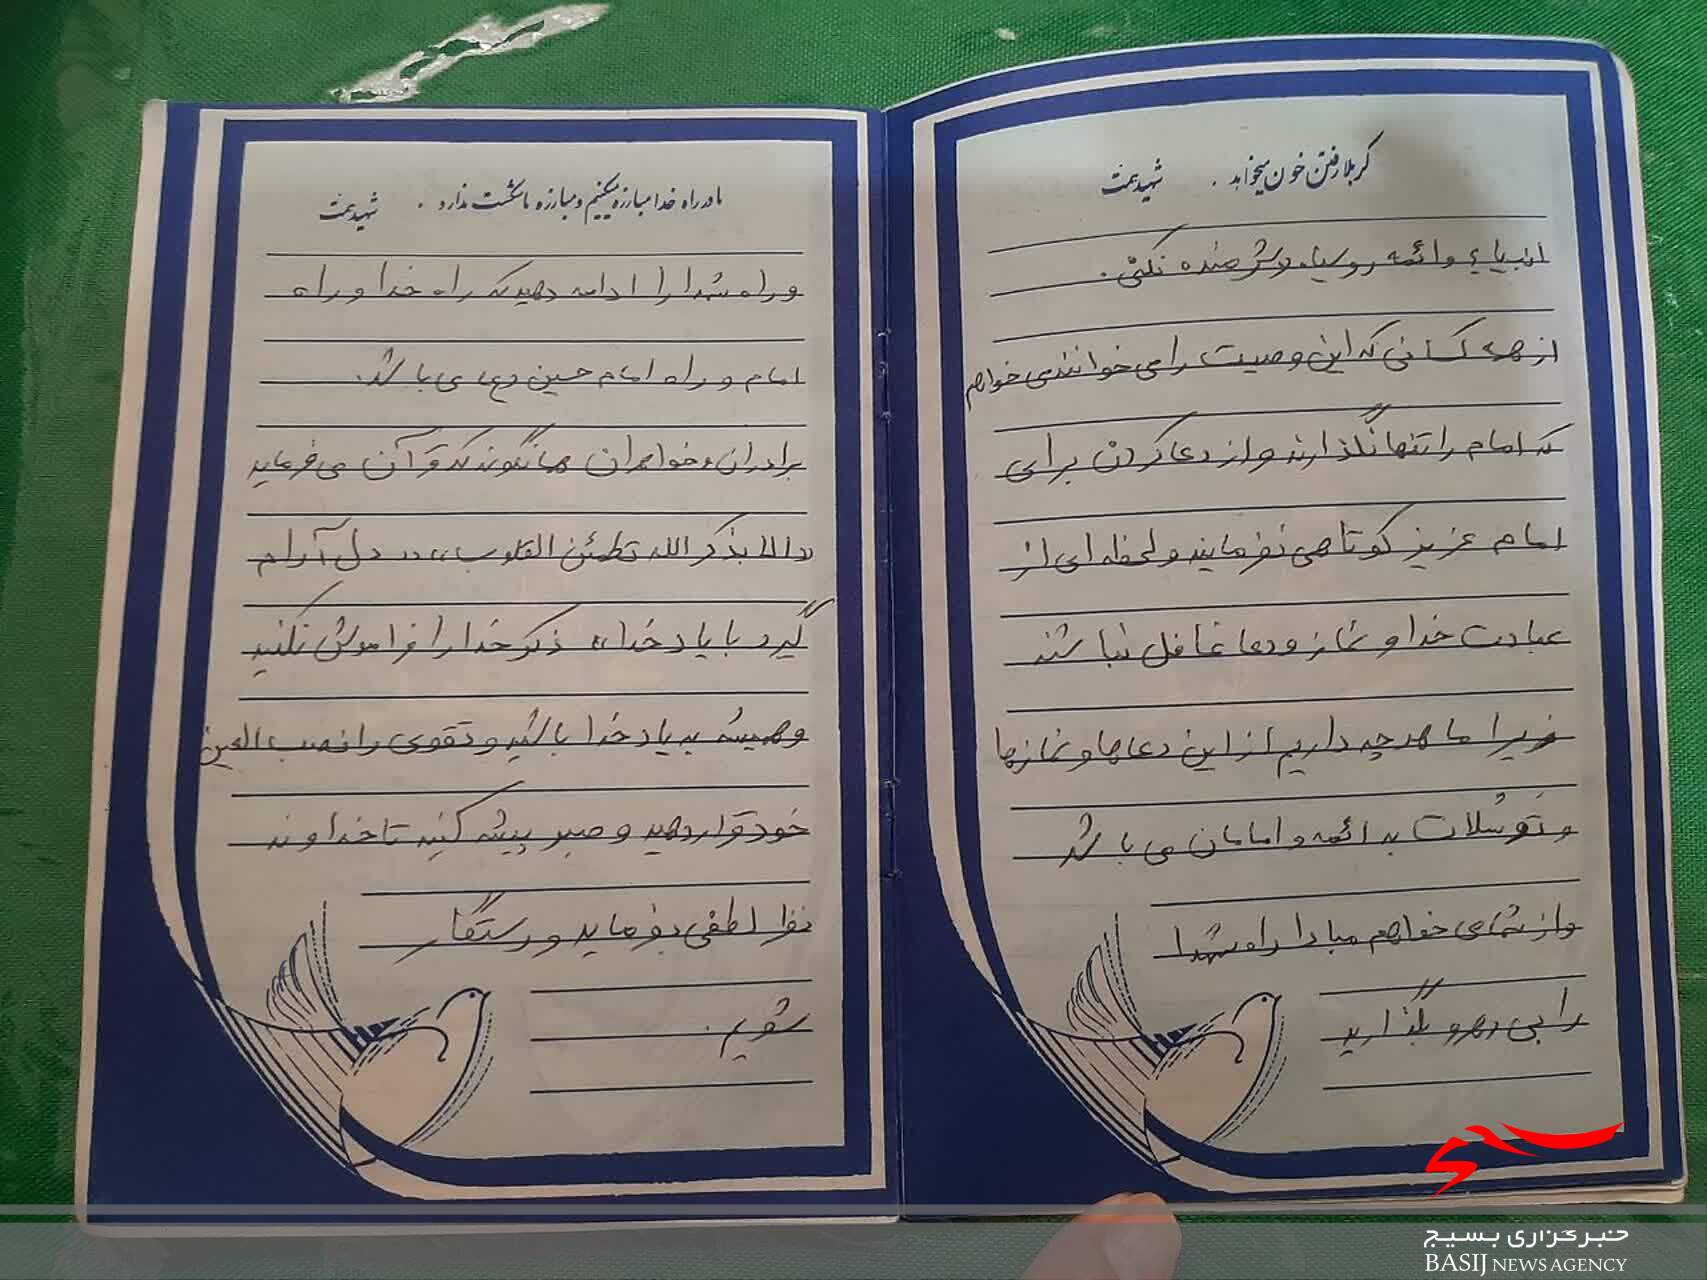 کربلا رفتن خون میخواهد . شهید همت
انبیاء و ائمه رو سیاه و شرمنده نکنی .
از همه کسانی که این وصیت را می خوانند می خواهم
که امام را تنها نگذارند و از دعا کردن برای
امام عزیز کوتاهی نفرمایند و لحظه ای از
عبادت خدا و نماز و دعا غافل نباشند
زیرا ما هر چه داریم از این دعاها و نمازها
و توسلات به ائمه و امامان می باشد
و از شما می خواهم مبادا راه شهدا
را بی رهرو بگذارید
ما در راه خدا مبارزه میکنیم و مبارزه ما شکست ندارد . شهید همت
و راه شهدا را ادامه دهید که راه خدا و راه
امام و راه امام حسین (ع) می باشد.
برادران و خواهران همانگونه که قرآن می فرماید
«الا بذکر الله تطمئن القلوب» «دل آرام
گیرد با یاد خدا» ذکر خدا را فراموش نکنید
و همیشه به یاد خدا باشید و تقوی را نصب العین
خود قرار دهید و صبر پیشه کنید تا خداوند
نظر لطفی بفرماید و رستگار
شویم.
بسیج
خبرگزاری بسیج
BASIJ NEWS AGENCY